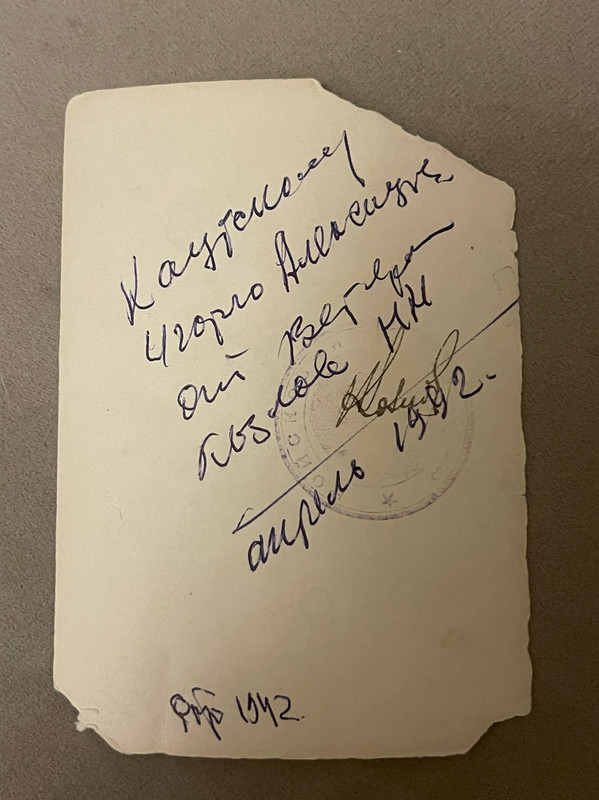 Кацускому
Игорю Александру
от Ветеран
Козлова НН
апрель 1992.
фото 1942.